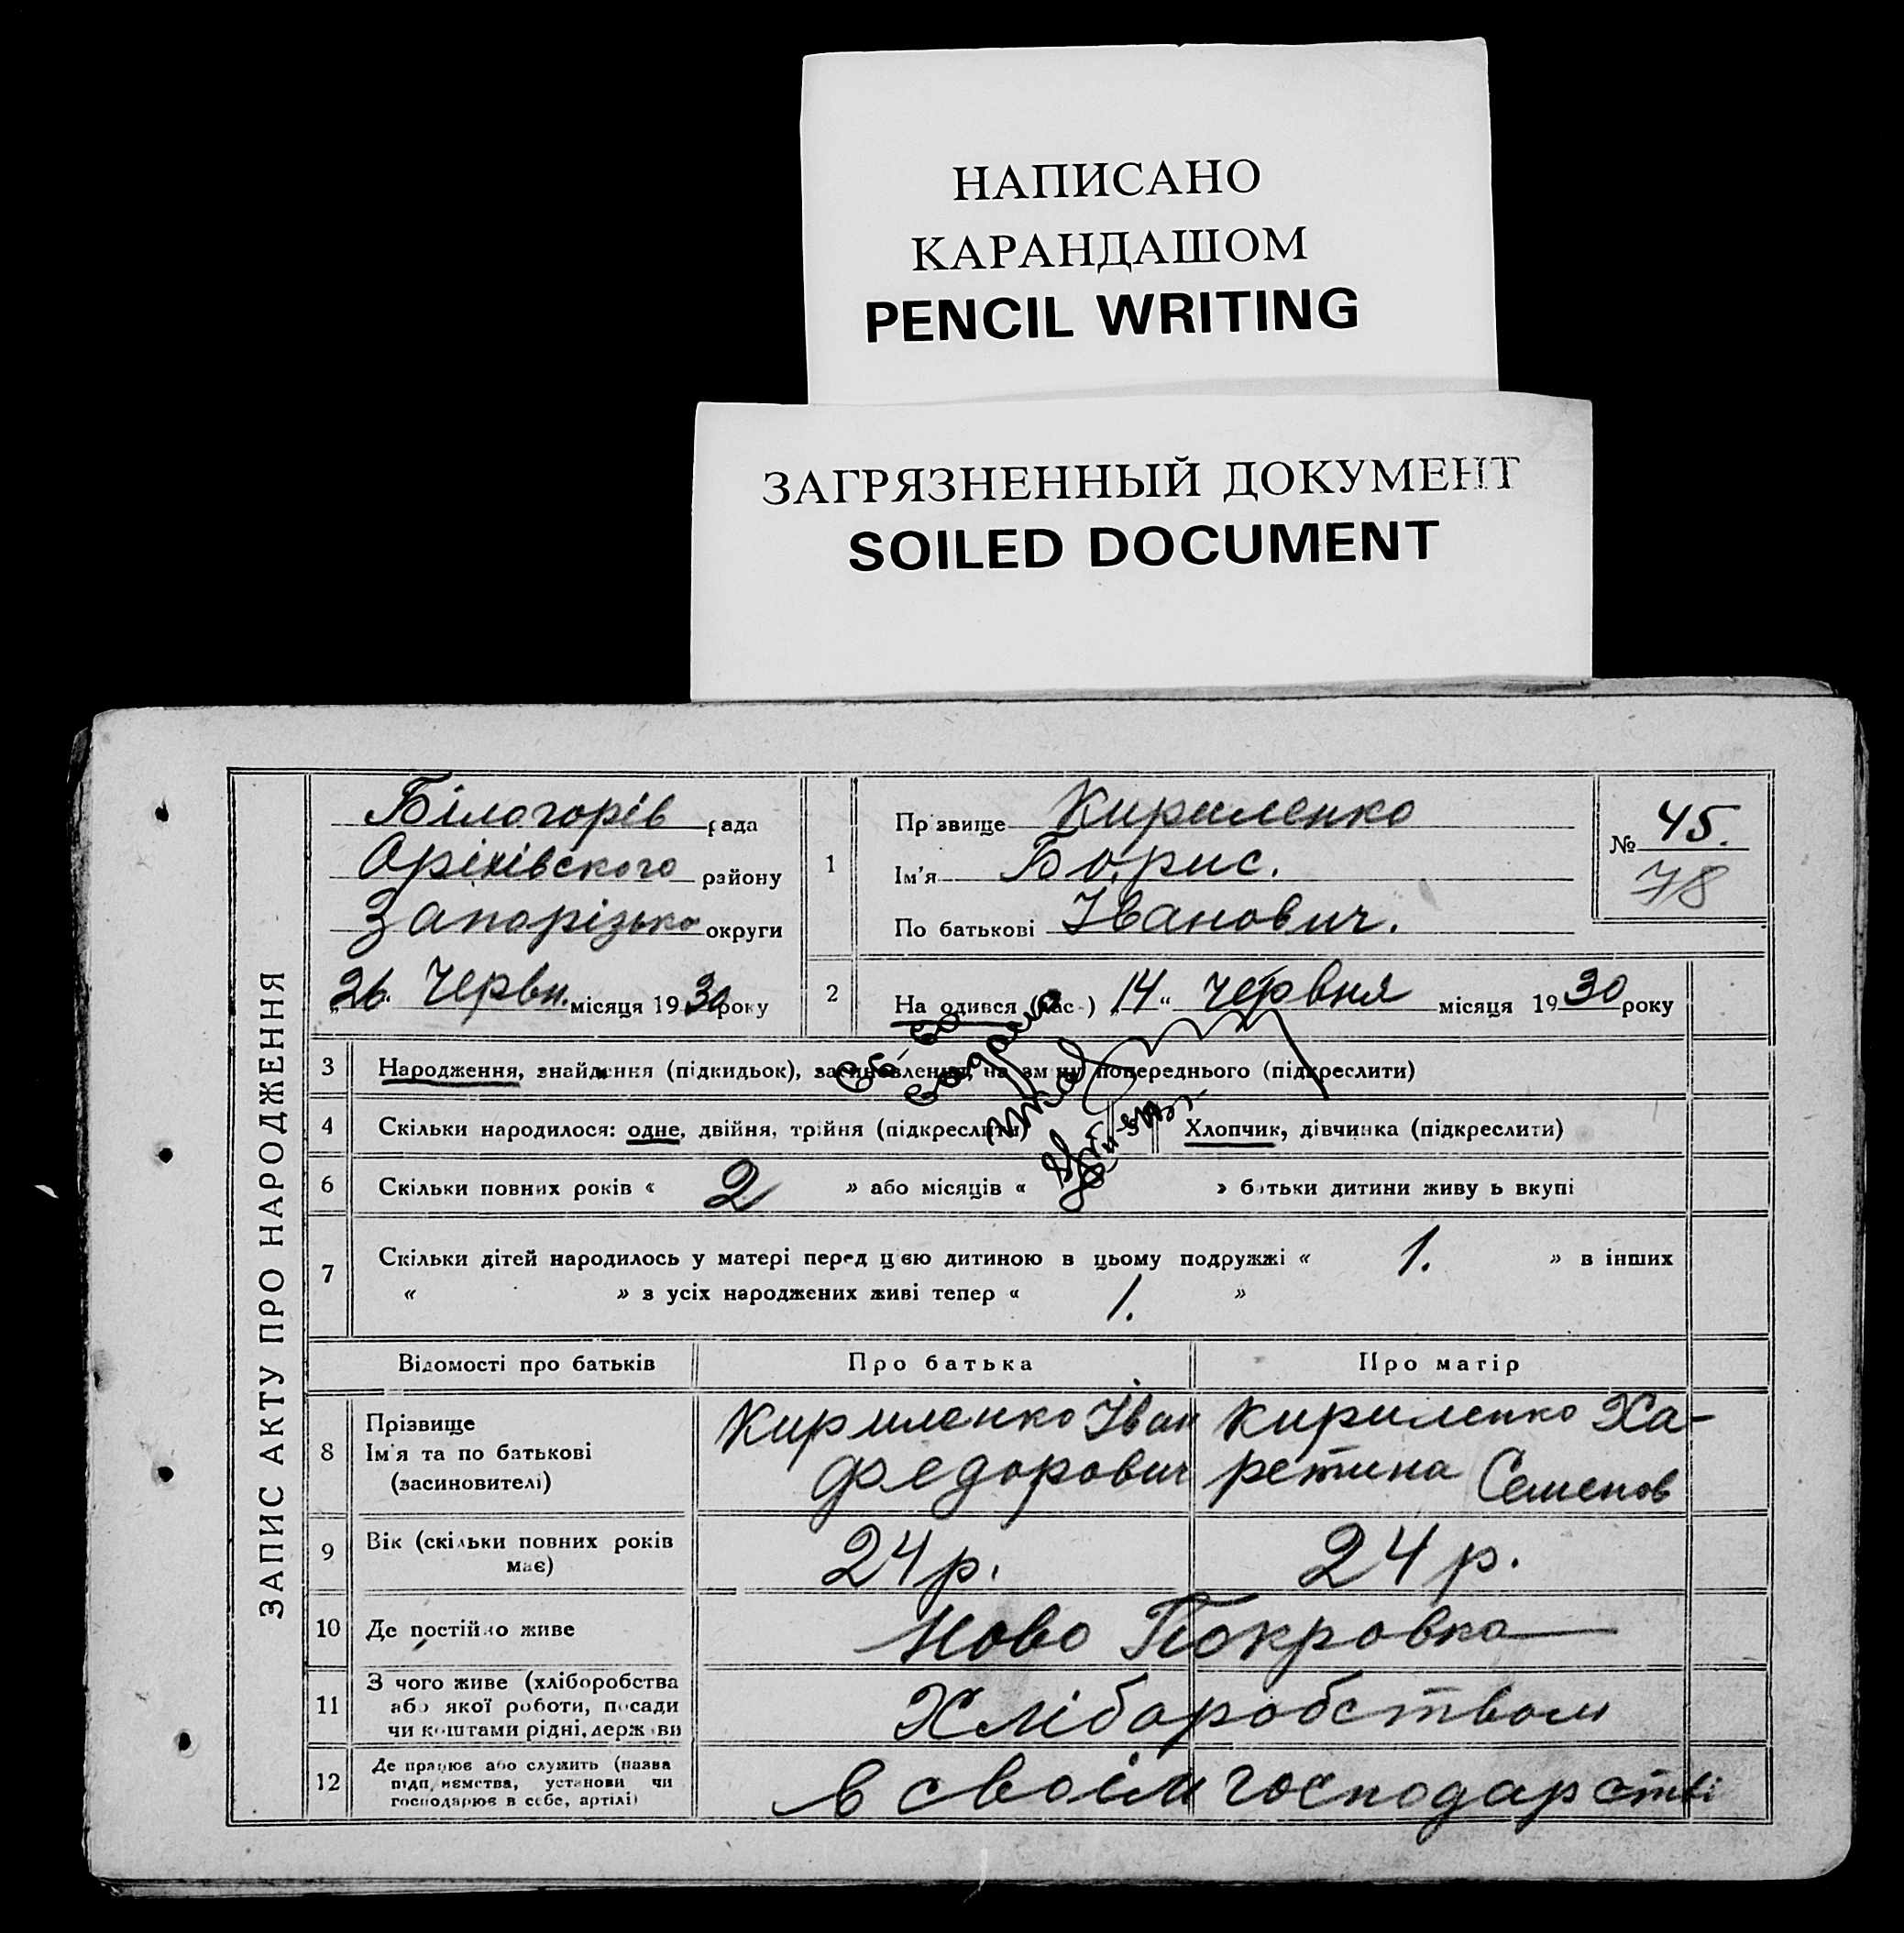 НАПИСАНО
КАРАНДАШОМ
PENCIL WRITING
ЗАГРЯЗНЕННЫЙ ДОКУМЕНТ
SOILED DOCUMENT
ЗАПИС АКТУ ПРО НАРОДЖЕННЯ
Білогорів рада
Оріхівского району
Запорізько округи
„26. Червн. місяця 1930 року
1
Прізвище Кириленко
Ім'я Борис.
По батькові Іванович.
№ 45.
78
2
На одився (лас-) „14“ червня місяця 1930 року
3 Народження, знайдення (підкидьок), засиновлення, на зміну попереднього (підкреслити)
4 Скільки народилося: одне, двійня, трійня (підкреслити) Хлопчик, дівчинка (підкреслити)
6 Скільки повних років « 2 » або місяців « » батьки дитини живу ь вкупі
7 Скільки дітей народилось у матері перед цією дитиною в цьому подружжі « 1. » в інших
« » з усіх народжених живі тепер « 1. »
Відомості про батьків Про батька Про матір
8 Прізвище
Ім'я та по батькові
(засиновителі)
Кириленко Іван
Федорович
Кириленко Ха-
ретина Семенов
9 Вік (скільки повних років
має)
24 р. 24 р.
10 Де постійно живе Ново Покровка
11 З чого живе (хліборобства
або якої роботи, посади
чи коштами рідні, держ ви
Хліборобством
12 Де працює або служить (назва
підп иємства, установи чи
господарює в себе, артілі)
в своім господарстві